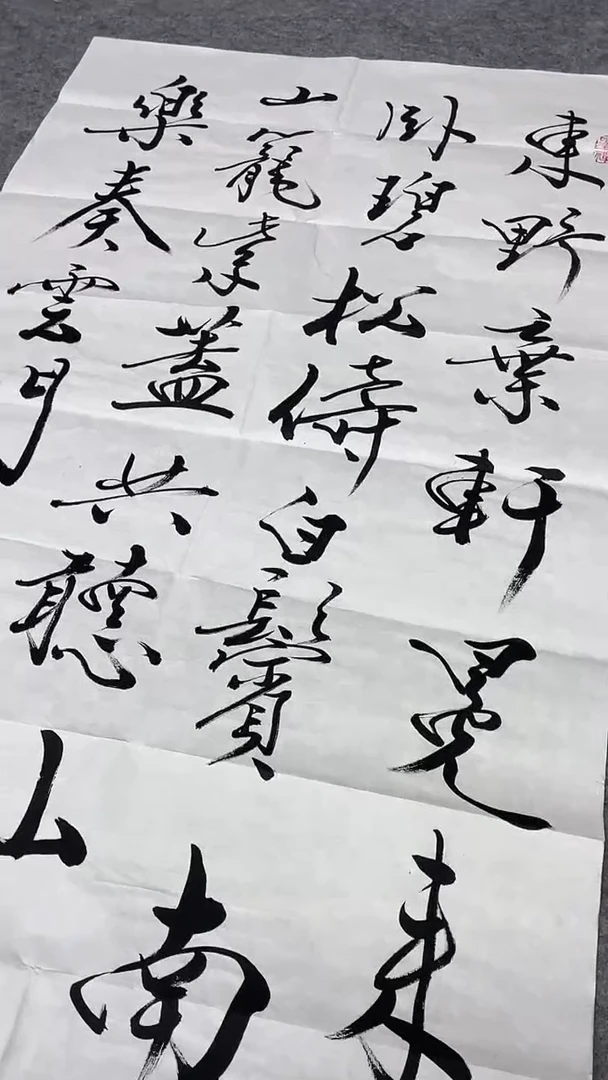 東野棄軒冕来
卧碧松儔白鬢南
山籠紫蓋共聽山
樂奏雲月